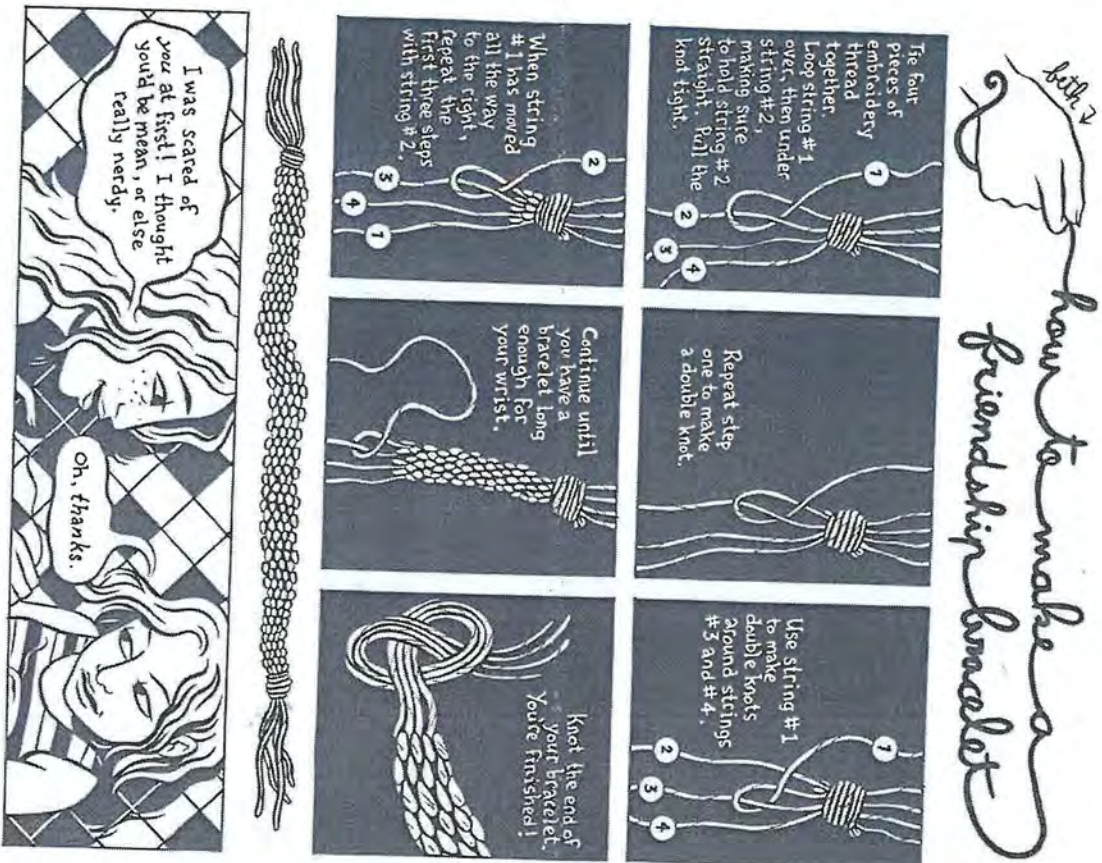 beth
how to make a
friendship bracelet
Tie four
pieces of
embroidery
thread
together.
Loop string #1
over, then under
string #2,
making sure
to hold string #2
straight. Pull the
knot tight.
1
2
3
4
Repeat step
one to make
a double knot.
Use string #1
to make
double knots
around strings
#3 and #4.
1
2
3
4
When string
#1 has moved
all the way
to the right,
repeat the
first three steps
with string #2.
2
3
4
1
Continue until
you have a
bracelet long
enough for
your wrist.
Knot the end of
your bracelet.
You're finished!
I was scared of
you at first! I thought
you'd be mean, or else
really nerdy.
Oh, thanks.